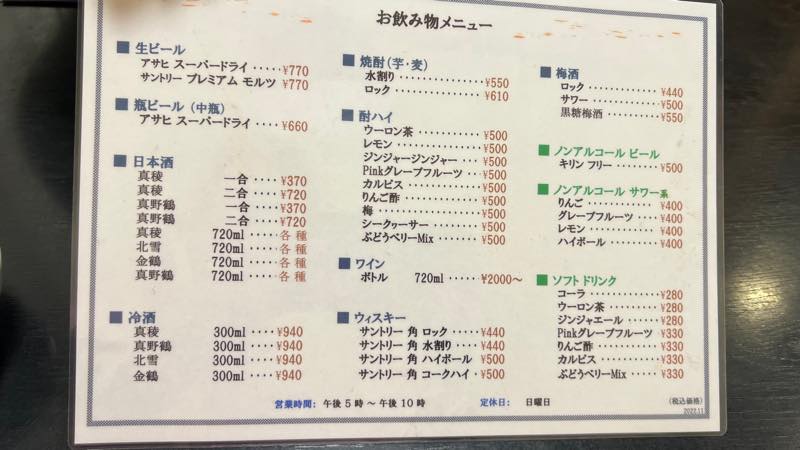 お飲み物メニュー
■ 生ビール
アサヒ スーパードライ ‥‥‥ ¥770
サントリー プレミアム モルツ ¥770
■ 瓶ビール (中瓶)
アサヒ スーパードライ ‥‥ ¥660
■ 日本酒
真稜 一合 ‥‥ ¥370
真稜 二合 ‥‥ ¥720
真野鶴 一合 ‥‥ ¥370
真野鶴 二合 ‥‥ ¥720
真稜 720ml ‥‥ 各種
北雪 720ml ‥‥ 各種
金鶴 720ml ‥‥ 各種
真野鶴 720ml ‥‥ 各種
■ 冷酒
真稜 300ml ‥‥ ¥940
真野鶴 300ml ‥‥ ¥940
北雪 300ml ‥‥ ¥940
金鶴 300ml ‥‥ ¥940
■ 焼酎 (芋・麦)
水割り ‥‥‥‥‥‥‥ ¥550
ロック ‥‥‥‥‥‥‥ ¥610
■ 酎ハイ
ウーロン茶 ‥‥‥‥‥ ¥500
レモン ‥‥‥‥‥‥‥ ¥500
ジンジャージンジャー ‥‥ ¥500
Pinkグレープフルーツ ‥‥ ¥500
カルピス ‥‥‥‥‥‥ ¥500
りんご酢 ‥‥‥‥‥‥ ¥500
梅 ‥‥‥‥‥‥‥‥‥ ¥500
シークヮーサー ‥‥‥‥ ¥500
ぶどうベリーMix ‥‥‥‥ ¥500
■ ワイン
ボトル 720ml ‥‥‥ ¥2000～
■ ウィスキー
サントリー 角 ロック ‥‥‥ ¥440
サントリー 角 水割り ‥‥‥ ¥440
サントリー 角 ハイボール ‥‥ ¥500
サントリー 角 コークハイ ‥‥ ¥500
■ 梅酒
ロック ‥‥‥‥‥‥ ¥440
サワー ‥‥‥‥‥‥ ¥500
黒糖梅酒 ‥‥‥‥‥ ¥550
■ ノンアルコール ビール
キリン フリー ‥‥‥‥ ¥500
■ ノンアルコール サワー系
りんご ‥‥‥‥‥‥ ¥400
グレープフルーツ ‥‥‥ ¥400
レモン ‥‥‥‥‥‥ ¥400
ハイボール ‥‥‥‥‥ ¥400
■ ソフトドリンク
コーラ ‥‥‥‥‥‥ ¥280
ウーロン茶 ‥‥‥‥‥ ¥280
ジンジャエール ‥‥‥‥ ¥280
Pinkグレープフルーツ ¥330
りんご酢 ‥‥‥‥‥ ¥330
カルピス ‥‥‥‥‥ ¥330
ぶどうベリーMix ‥‥‥ ¥330
営業時間: 午後5時～午後10時 定休日: 日曜日
(税込価格)
2022.11